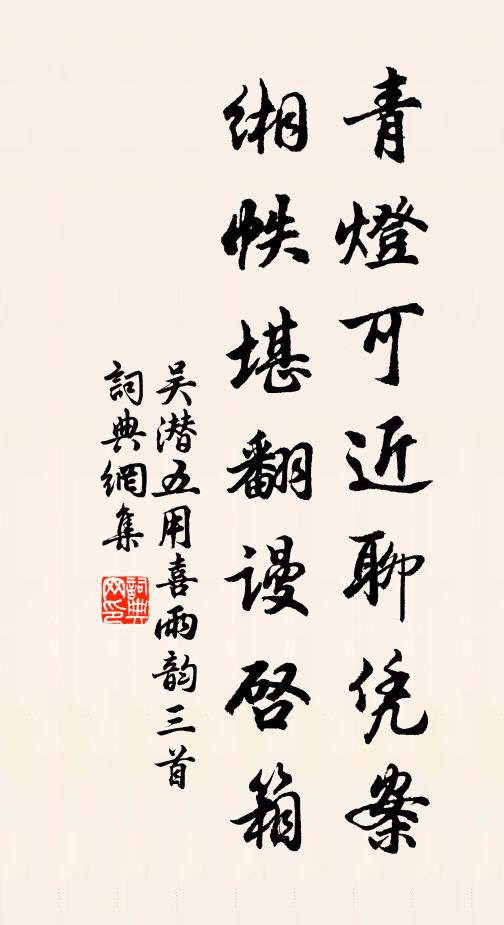 青燈可近聊凭案
緗帙堪翻謾啓箱
吴潜五用喜雨韵三首
詞典網集
詞典網印